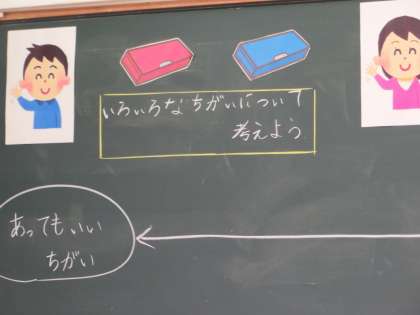 いろいろなちがいについて
考えよう
あってもいい
ちがい